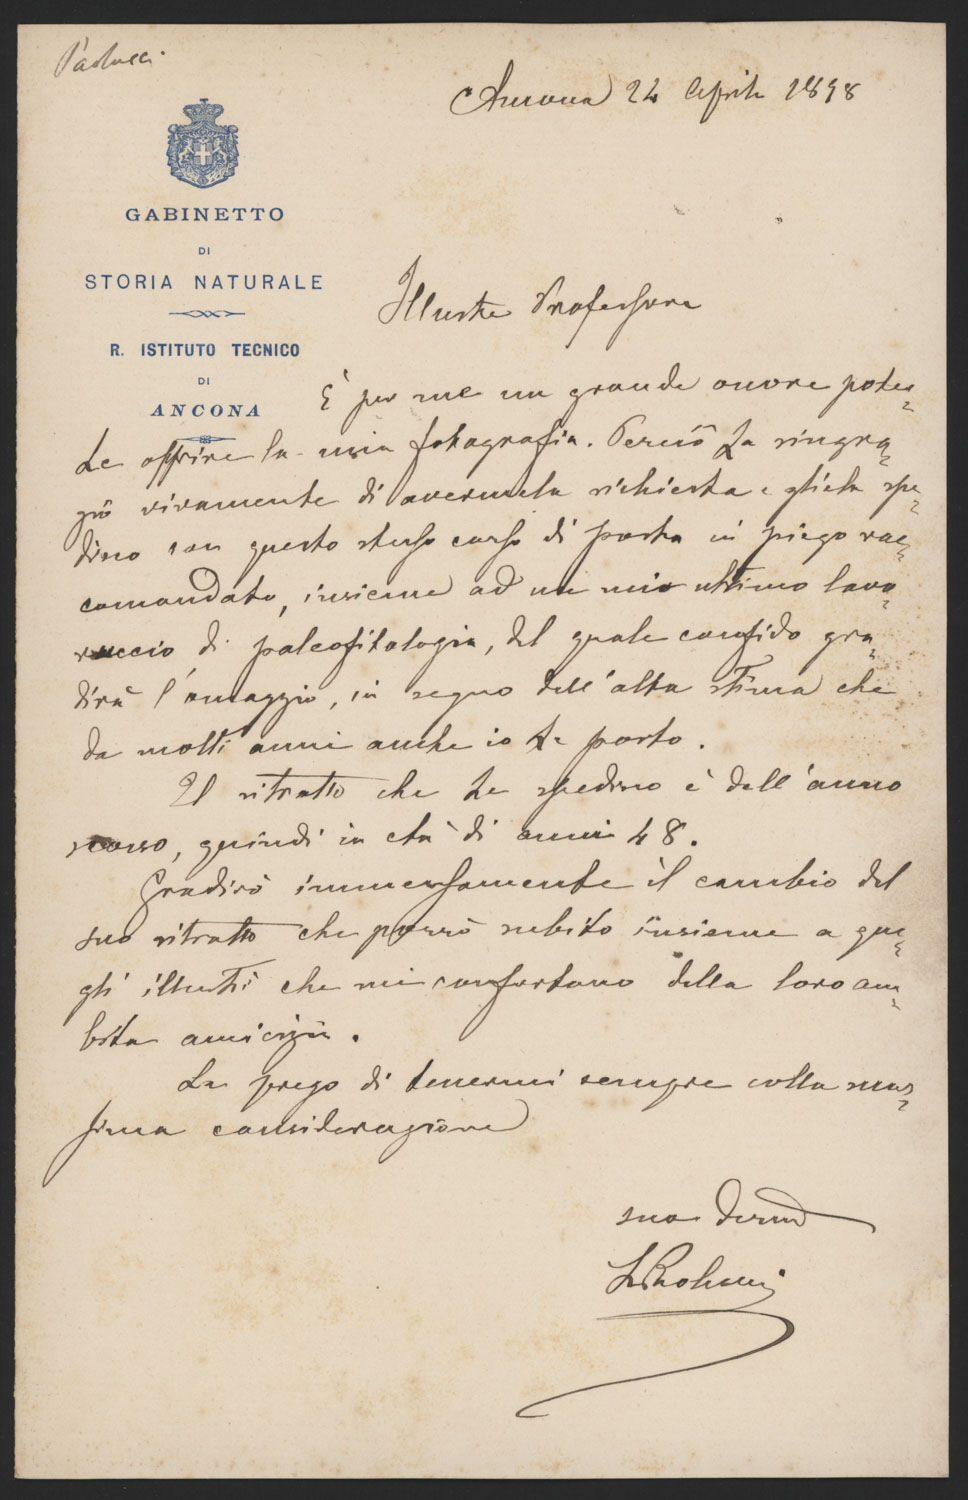 Paolucci
Ancona 24 Aprile 1898
GABINETTO
DI
STORIA NATURALE
R. ISTITUTO TECNICO
DI
ANCONA
Illustre Professore
È per me un grande onore poter-
Le offrire la mia fotografia. Perciò La ringra-
zio vivamente di avermela richiesta e gliela spe-
disco con questo stesso corso di posta in piego rac-
comandato, insieme ad un mio ultimo lavo-
ruccio di paleofitologia, del quale confido gra-
dirà l'omaggio, in segno dell'alta stima che
da molti anni anche io Le porto.
Il ritratto che Le spedisco è dell'anno
scorso, quindi in età di anni 48.
Gradirò immensamente il cambio del
suo ritratto che porrò subito insieme a que-
gli illustri che mi confortano della loro am-
bita amicizia.
La prego di tenermi sempre nella mas-
sima considerazione
suo Devmo
L Paolucci